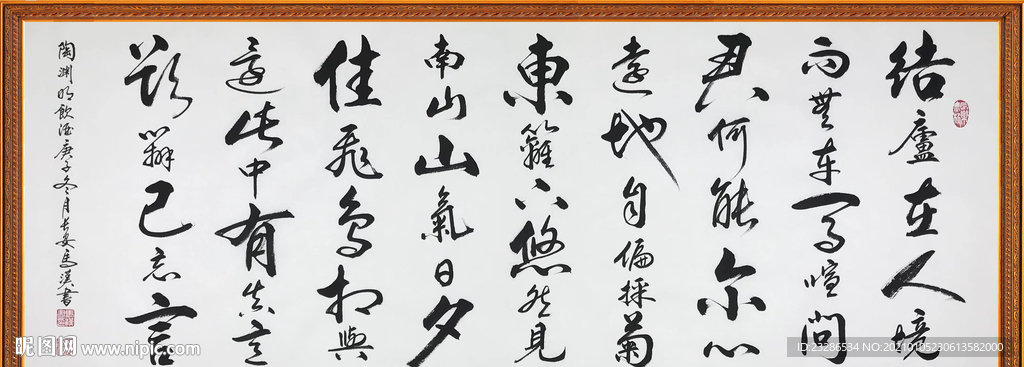 結廬在人境
而無車馬喧問
君何能尔心
遠地自偏採菊
東籬下悠然見
南山山氣日夕
佳飛鳥相與
還此中有真意
欲辯已忘言
陶渊明飲酒庚子冬月長安馬漢書
昵图网 www.nipic.com
ID:23286534 NO:20210105230613582000